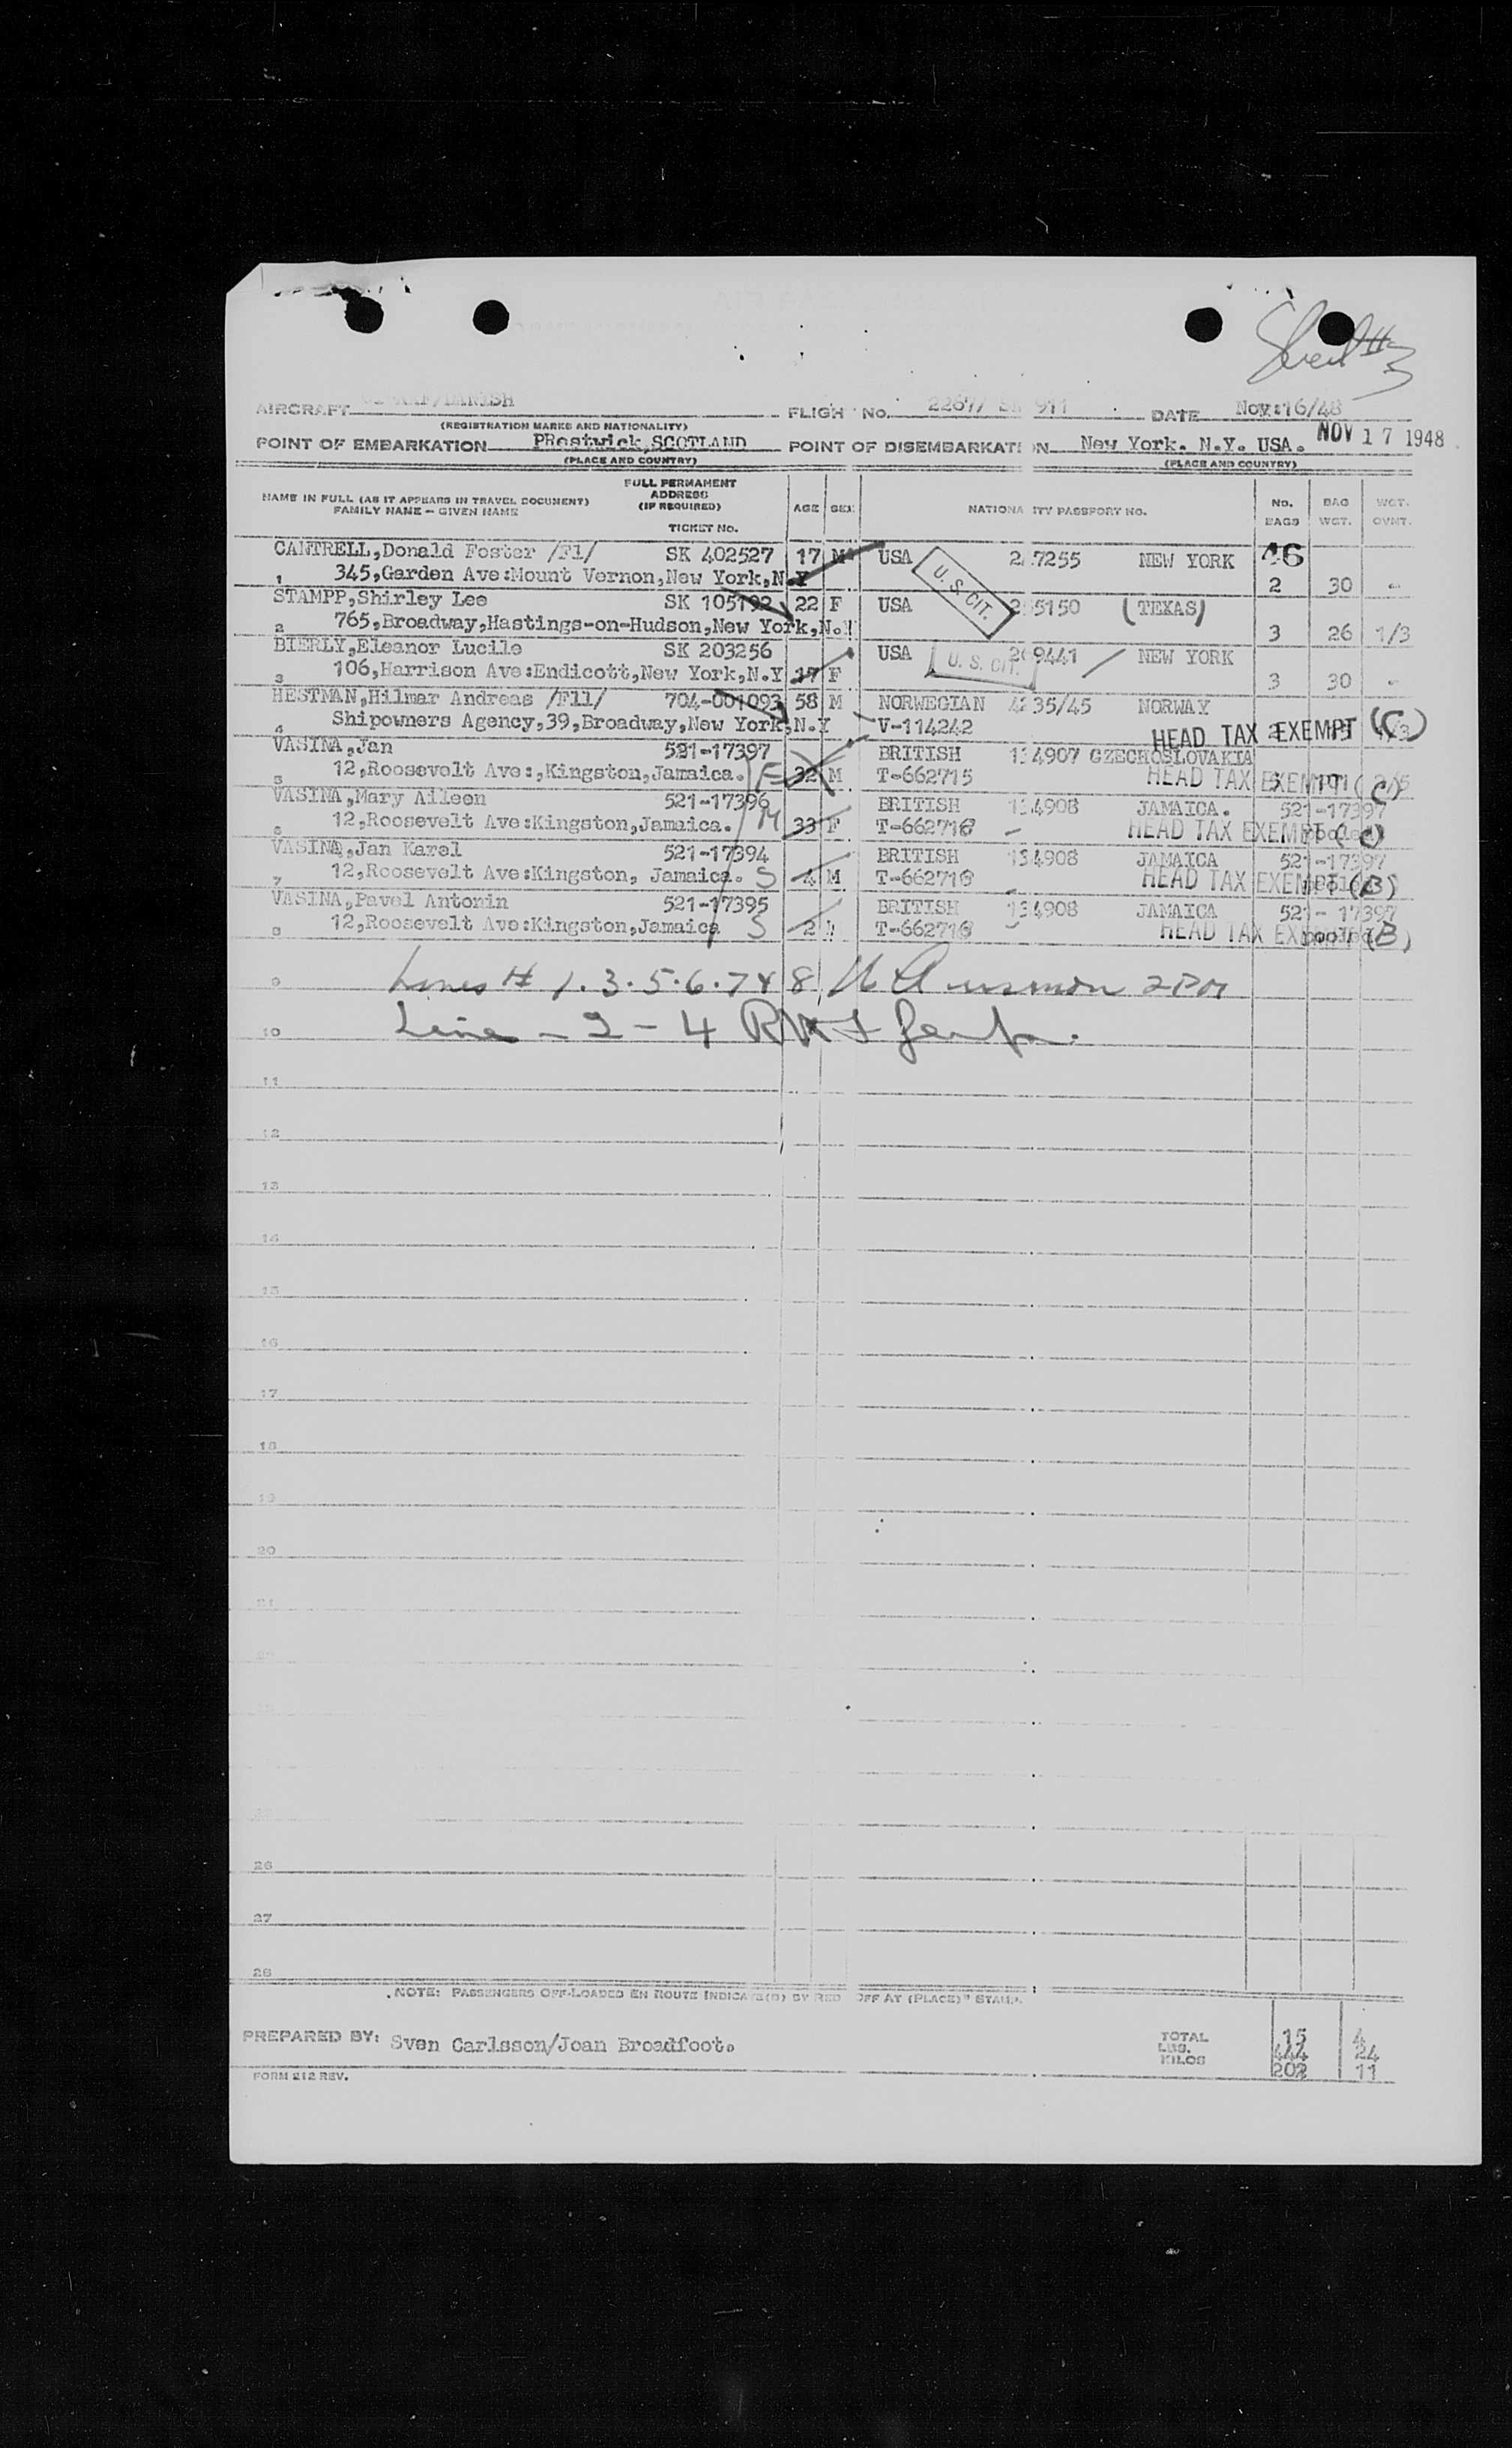 Sheet #3
AIRCRAFT DANISH FLIGH No. 911 DATE Nov:16/48
(REGISTRATION MARKS AND NATIONALITY)
POINT OF EMBARKATION PRestwick,SCOTLAND POINT OF DISEMBARKATI N New York. N.Y. USA. NOV 17 1948
(PLACE AND COUNTRY) (PLACE AND COUNTRY)
NAME IN FULL (AS IT APPEARS IN TRAVEL DOCUMENT) FAMILY NAME - GIVEN NAME
FULL PERMANENT ADDRESS (IF REQUIRED) TICKET NO.
AGE SEX NATIONA ITY PASSPORT NO. NO. BAGS BAG WGT. WGT. OVWT.
CANTRELL,Donald Foster /F1/ SK 402527 17 M USA 2 7255 NEW YORK 46
1 345,Garden Ave:Mount Vernon,New York,N.Y 2 30 -
U. S. CIT.
STAMPP,Shirley Lee SK 105192 22 F USA 2 5150 (TEXAS)
2 765,Broadway,Hastings-on-Hudson,New York,N. 3 26 1/3
BIERLY,Eleanor Lucile SK 203256 USA 2 9441 NEW YORK
U. S. CIT.
3 106,Harrison Ave:Endicott,New York,N.Y 17 F 3 30 -
HESTMAN,Hilmar Andreas /F11/ 704-001093 58 M NORWEGIAN 35/45 NORWAY
4 Shipowners Agency,39,Broadway,New York,N.Y V-114242 HEAD TAX EXEMPT (C)
VASINA,Jan 521-17397 BRITISH 134907 CZECHOSLOVAKIA
5 12,Roosevelt Ave:,Kingston,Jamaica. F 32 M T-662715 HEAD TAX EXEMPT (C)
VASINA,Mary Aileen 521-17396 BRITISH 134908 JAMAICA. 521-17397
6 12,Roosevelt Ave:Kingston,Jamaica. M 33 F T-662716 HEAD TAX EXEMPT (C)
VASINA,Jan Karel 521-17394 BRITISH 134908 JAMAICA 521-17397
7 12,Roosevelt Ave:Kingston, Jamaica. S 4 M T-662716 HEAD TAX EXEMPT (B)
VASINA,Pavel Antonin 521-17395 BRITISH 134908 JAMAICA 521- 17397
8 12,Roosevelt Ave:Kingston,Jamaica S 2 T-662716 HEAD TAX EXEMPT (B)
9 Lines # 1.3.5.6.7 & 8
10 Line - 2 - 4
11
12
13
14
15
16
17
18
19
20
21
26
27
28
NOTE: PASSENGERS OFF-LOADED EN ROUTE INDICATE(D) BY RED OFF AT (PLACE)" STAMP.
PREPARED BY: Sven Carlsson/Joan Broadfoot.
TOTAL 15 4
LBS. 444 24
KILOS 202 11
FORM 212 REV.